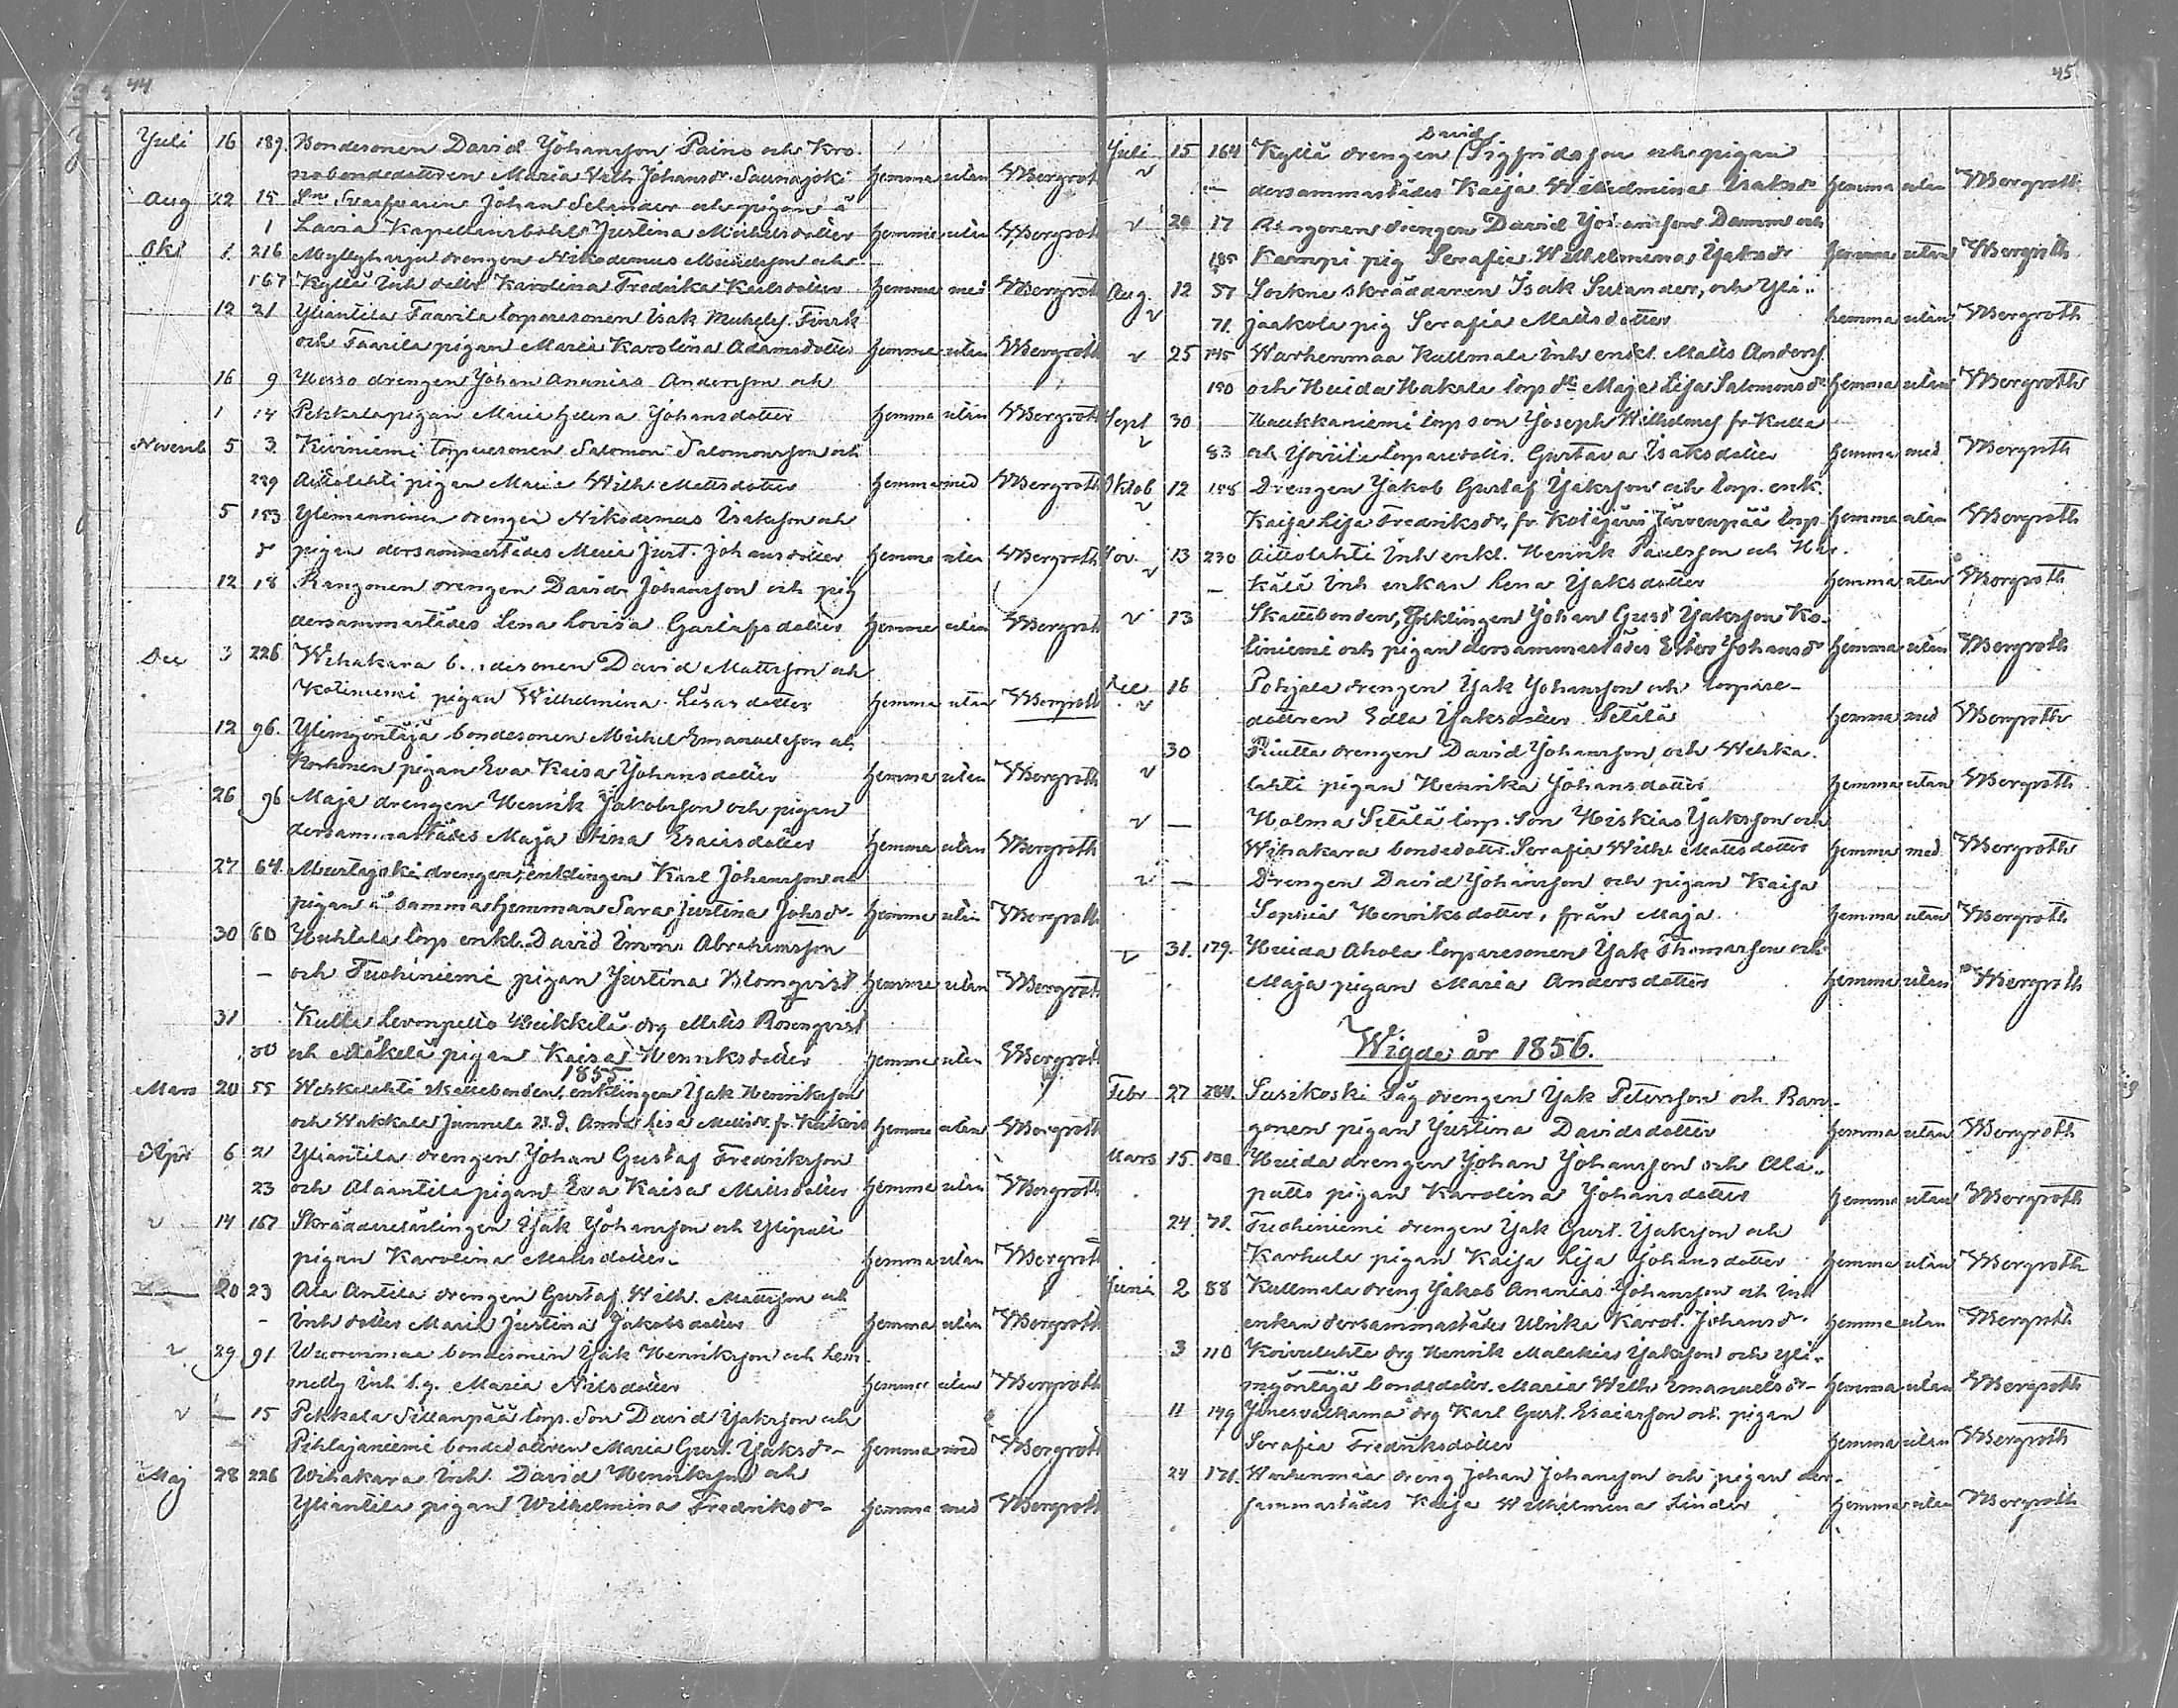 44
Juli 16 189. Bondesonen David Johansson Paino och Kro-
nobondedottren Maria Wilh. Johansdr. Saunajoki hemma utan Bergroth
Aug 22 15 Johan Selander och pigan å
1 Lavia Kapellansbohls Justina Michelsdotter hemma utan Bergroth
Okt 1 216 Myllyharju drengen Nikodemus och
167 Kyllä Inh dotter Karolina Fredrika Karlsdotter hemma med Bergroth
12 21 Yliantila Faarila torparesonen Isak Michelss. Finsk
och Faarila pigan Maria Karolina Adamsdotter hemma utan Bergroth
16 9 Hosso drengen Johan Ananias Andersson och
1 14 Pekkala pigan Maria Helena Johansdotter hemma utan Bergroth
Novemb 5 3 Kiviniemi torparesonen Salomon Salomonsson och
229 Aittolahti pigan Maria Wilh. Mattsdotter hemma med Bergroth
5 153 Ylimanninen drengen Nikodemus Isaksson och
pigan dersammastädes Maria Just. Johansdotter hemma utan Bergroth
12 18 Rangonen drengen David Johansson och pig
dersammastädes Lena Lovisa Gustafsdotter hemma utan Bergroth
Dec 3 226 Wihakara b...desonen David Mattsson och
Kotiniemi pigan Wilhelmina Lisasdotter hemma utan Bergroth
12 96. Ylimyöntäjä bondesonen Michel Emanuelsson och
Korhonen pigan Eva Kaisa Johansdotter hemma utan Bergroth
26 96 Maja drengen Henrik Jakobsson och pigan
dersammastädes Maja Stina Esaiasdotter hemma utan Bergroth
27 64. drengen, enklingen Karl Johansson och
pigan å samma hemman Sara Justina Johsdr. hemma utan Bergroth
30 60 Huhtala torp enkl. David Imm. Abrahamsson
— och Tuohiniemi pigan Justina Blomqvist hemma utan Bergroth
31 Kulla Levonpelto Heikkilä drg Matts Rosenqvist
80 och Mäkelä pigan Kaisa Henriksdotter hemma utan Bergroth
1855
Mars 20 55 Wehkalahti Skattebonden, enklingen Isak Henriksson
och Wakkala Junnila Anna Lisa Mattsdr. fr. hemma utan Bergroth
Apr 6 21 Yliantila drengen Johan Gustaf Fredriksson
23 och Alaantila pigan Eva Kaisa Mattsdotter hemma utan Bergroth
v 14 167 Skräddarelärlingen Isak Johansson och Ylipali
pigan Karolina Mattsdotter hemma utan Bergroth
20 23 Ala Antila drengen Gustaf Wilh. Mattsson och
- Inh dotter Maria Justina Jakobsdotter hemma utan Bergroth
v 29 91 Wuorenmaa bondesonen Isak Henriksson och
Inh Maria Nilsdotter hemma utan Bergroth
v — 15 Pekkala Sillanpää torp. son David Isaksson och
Pihlajaniemi bondedottren Maria Gust. Isaksdr- hemma med Bergroth
Maj 28 226 Wihakara Inh. David Henriksson och
Yliantila pigan Wilhelmina Fredriksdr- hemma med Bergroth
45
Juli 15 164 Kyllä drengen David Sigfridsson och pigan
v — dersammastädes Kaija Wilhelmina Isaksdr hemma utan Bergroth
v 20 17 Rangonen drengen David Johansson Damm och
185 Kamppi pig Serafia Wilhelmina Isaksdr hemma utan Bergroth
Aug. 12 57 Sockneskräddaren Isak Sulander, och Yli-
v 71. jaakola pig Serafia Mattsdotter hemma utan Bergroth
v 25 145 Warhenmaa Kullmala Inh enkl. Matts Anderss.
150 och Huida Hakala torp dr Maja Lisa Salomonsdr. hemma utan Bergroth
Sept 30 Haukkaniemi torp son Joseph Wilhelmss fr. Kulla
v 83 och Torpare dotter. Gustava Isaksdotter hemma med Bergroth
Oktob 12 158 Drengen Jakob Gustaf Isaksson och torp. enk.
v Kaisa Lisa Fredriksdr, fr. Kotajärvi Järvenpää torp hemma utan Bergroth
Nov. 13 230 Aittolahti Inh enkl. Henrik Paulsson och
v — Inh enkan Lena Isaksdotter hemma utan Bergroth
v 13 Skattebonden, Enklingen Johan Gust Isaksson Ko-
tiniemi och pigan dersammastädes Ester Johansdr hemma utan Bergroth
Dec 16 Pohjala drengen Isak Johansson och torpare-
v dottren Edla Isaksdotter Setälä hemma med Bergroth
30 Riutta drengen David Johansson och Wehka-
v lahti pigan Henrika Johansdotter hemma utan Bergroth
v — Holma Setälä torp. son Hiskias Isaksson och
Wihakara bondedottr. Serafia Wilh. Mattsdotter hemma med Bergroth
v — Drengen David Johansson och pigan Kaisa
Sophia Henriksdotter, från Maja hemma utan Bergroth
v 31. 179. Huida Ahola torparesonen Isak Thomasson och
Maja pigan Maria Andersdotter hemma utan Bergroth
Wigde år 1856.
Febr 27 Susikoski Såg drengen Isak Petersson och Ran-
gonen pigan Justina Davidsdotter hemma utan Bergroth
Mars 15. 150. Huida drengen Johan Johansson och Ala-
patto pigan Karolina Johansdotter hemma utan Bergroth
24 71. Tuohiniemi drengen Isak Gust. Isaksson och
Karhula pigan Kaisa Lisa Johansdotter hemma utan Bergroth
Juni 2 88 Kullmala dreng Jakob Ananias Johansson och Inh
enkan dersammastädes Ulrika Karol. Johansdr. hemma utan Bergroth
3 110 Koivulahti drg Henrik Malakias Isaksson och Yli-
myöntäjä bondedottr. Maria Wilh Emanuelsdr- hemma utan Bergroth
11 149 Jänesvalkama drg Karl Gust. Esaiasson och pigan
Serafia Fredriksdotter hemma utan Bergroth
24 171. Warhenmaa dreng Johan Johansson och pigan der-
sammastädes Kaija Wilhelmina Linder hemma utan Bergroth